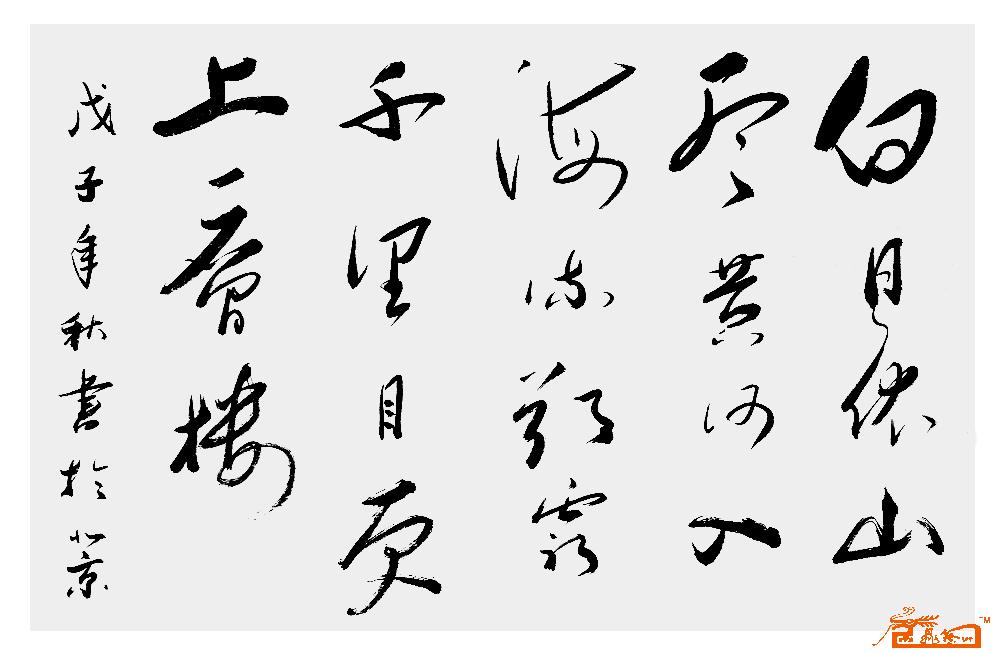 白日依山
尽黄河入
海流欲穷
千里目更
上一層楼
戊子年秋書於北京
TM